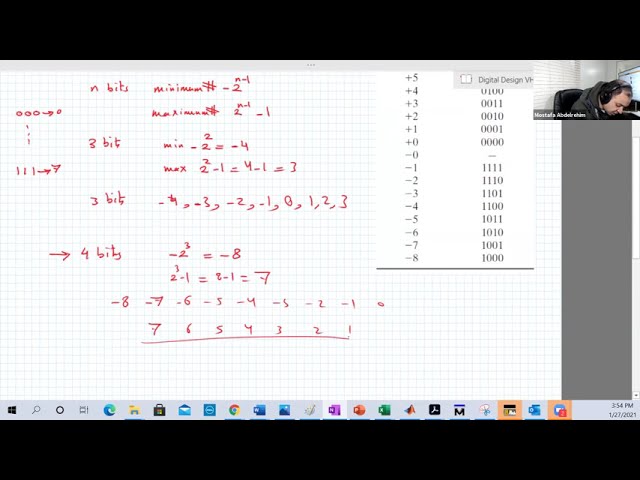 n bits minimum # -2^{n-1}
000→0 maximum # 2^{n-1} -1
3 bit min -2^2 = -4
111→7 max 2^2-1 = 4-1 = 3
3 bit -4, -3, -2, -1, 0, 1, 2, 3
→ 4 bits -2^3 = -8
2^3-1 = 8-1 = 7
-8 -7 -6 -5 -4 -3 -2 -1 0
7 6 5 4 3 2 1
+5
+4 0100
+3 0011
+2 0010
+1 0001
+0 0000
-0 —
-1 1111
-2 1110
-3 1101
-4 1100
-5 1011
-6 1010
-7 1001
-8 1000
Digital Design VH
Mostafa Abdelrehim
3:54 PM
1/27/2021